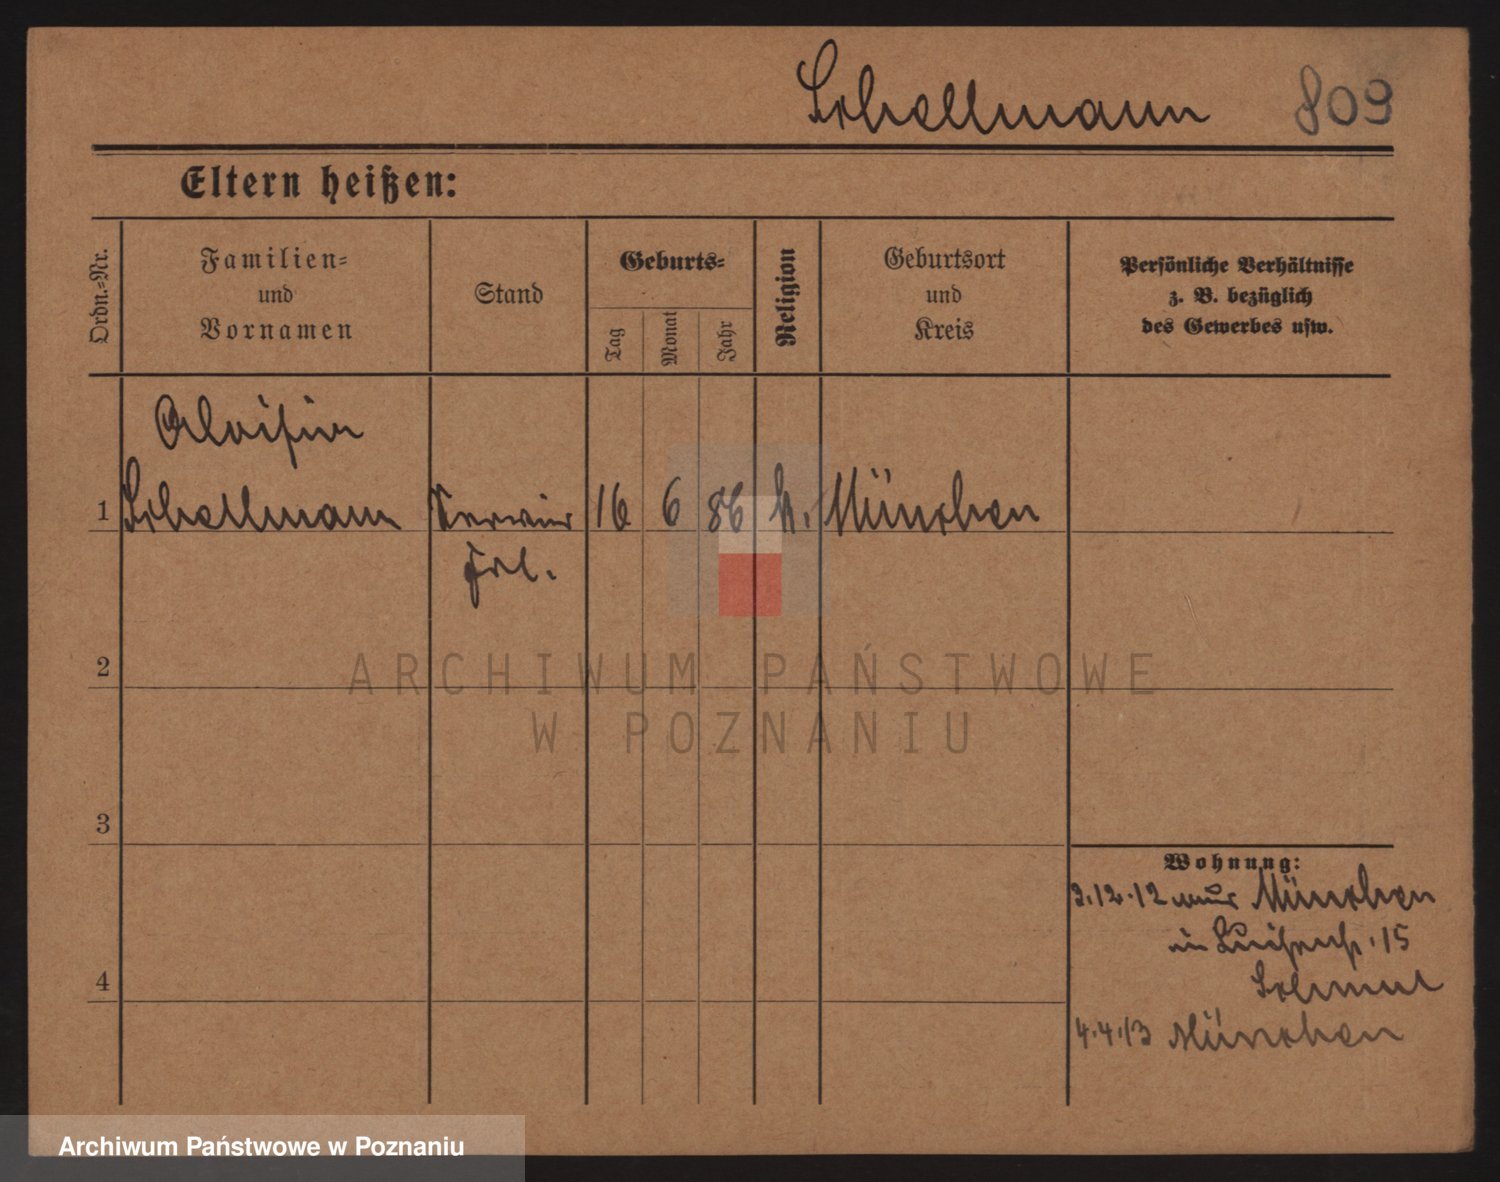 Schellmann 809
Eltern heißen:
Ordn.-Nr.
Familien-
und
Vornamen
Stand
Geburts-
Tag
Monat
Jahr
Religion
Geburtsort
und
Kreis
Persönliche Verhältnisse
z. B. bezüglich
des Gewerbes usw.
1
Schellmann
16 6 86 k. München
Frl.
2
3
4
Wohnung:
3.12.12 aus München
in Luisenstr. 15
4.4.13 München
ARCHIWUM PAŃSTWOWE
W POZNANIU
Archiwum Państwowe w Poznaniu